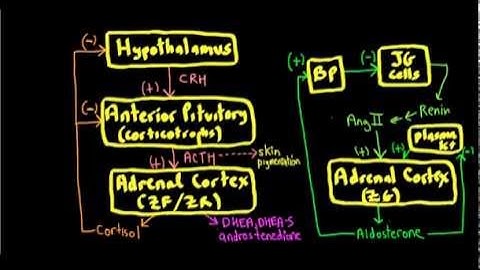 (-)
Hypothalamus
(+)
CRH
(-)
Anterior Pituitary
(corticotrophs)
(+)
ACTH
skin
pigmentation
Adrenal Cortex
(ZF/ZR)
Cortisol
DHEA, DHEA-S
androstenedione
(+)
BP
(-)
JG
cells
Renin
Ang II
(+)
(+)
plasma
[K+]
(-)
Adrenal Cortex
(ZG)
Aldosterone